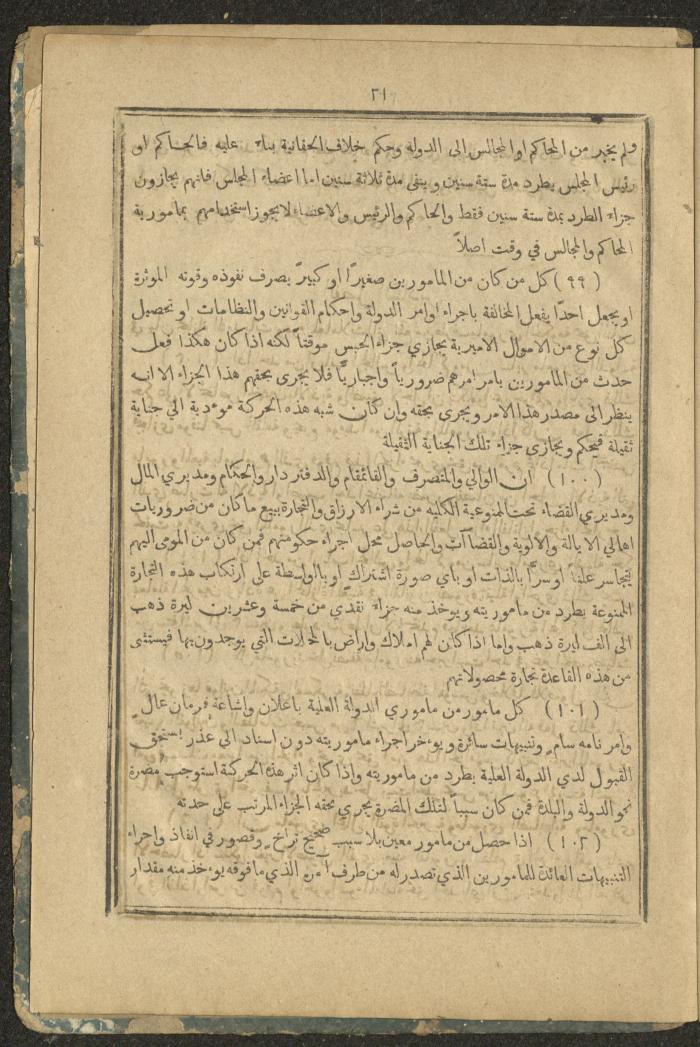 ٢١
ولم يخبر من المحاكم او المجالس الى الدولة وحكم خلاف الحقانية بناء عليه فالحاكم او
رئيس المجلس يطرد مدة ستة سنين وينفى مدة ثلاثة سنين اما اعضاء المجلس فانهم يجازون
جزاء الطرد بمدة ستة سنين فقط والحاكم والرئيس والاعضاء لا يجوز استخدامهم بمامورية
المحاكم والمجالس في وقت اصلاً
(٩٩) كل من كان من المامورين صغيرًا او كبيرً بصرف نفوذه وقوته الموثرة
او يجعل احدًا يفعل المخالفة باجراء اوامر الدولة واحكام القوانين والنظامات او تحصيل
كل نوع من الاموال الاميرية يجازي جزاء الحبس موقتاً لكنه اذا كان هكذا فعل
حدث من المامورين بامر امرهم ضرورياً واجبارياً فلا يجرى بحقهم هذا الجزاء الا انه
ينظر الى مصدر هذا الامر ويجرى بحقه وان كان شبه هذه الحركة موءدية الى جناية
ثقيلة فيحكم ويجازي جزاء تلك الجناية الثقيلة
(١٠٠) ان الوالي والمتصرف والقائمقام والدفتردار والحكام ومديري المال
ومديري القضاء تحت الممنوعية الكليه من شراء الارزاق والتجارة ببيع ما كان من ضروريات
اهالي الايالة والالوية والقضاآت والحاصل محل اجراء حكومتهم فمن كان من المومى اليهم
يتجاسر علناً او سرًّا بالذات او باي صورة اشتراك او بالواسطة على ارتكاب هذه التجارة
الممنوعة يطرد من ماموريته ويوخذ منه جزاء نقدي من خمسة وعشرين ليرة ذهب
الى الف ليرة ذهب واما اذا كان لهم املاك واراض بالمحلات التي يوجدون بها فيستثنى
من هذه القاعدة تجارة محصولاتهم
(١٠١) كل مامور من ماموري الدولة العلية باعلان واشاعة فرمان عال
وامر نامه سام وتنبيهات سائرة ويوءخر اجراء ماموريته دون اسناد الى عذر استحق
القبول لدي الدولة العلية يطرد من ماموريته واذا كان اثر هذه الحركة استوجب مضرة
نحو الدولة والبلدة فمن كان سبباً لتلك المضرة يجري بحقه الجزاء المرتب على حدته
(١٠٢) اذا حصل من مامور معين بلا سبب صحيح تراخ وقصور في انفاذ واجراء
التنبيهات العائدة للمامورين الذي تصدر له من طرف آمره الذي ما فوقه يوءخذ منه مقدار